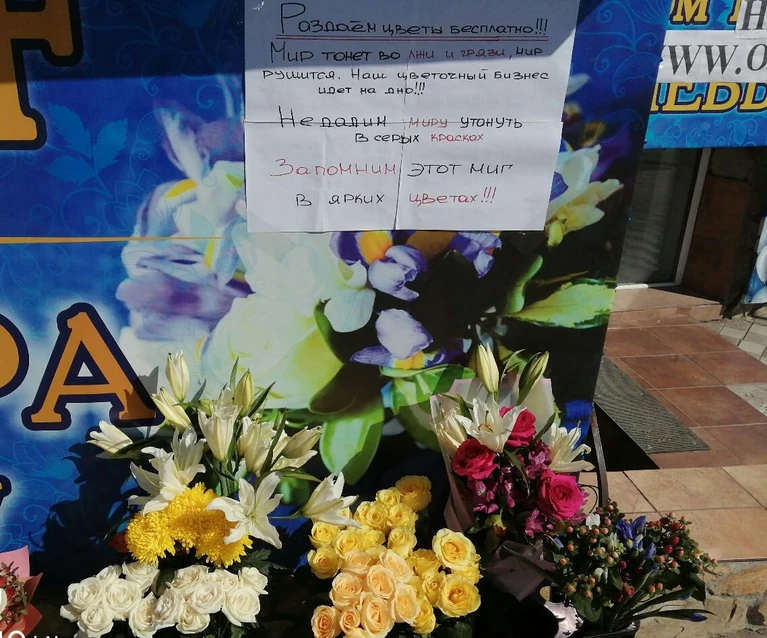 Раздаём цветы бесплатно!!!
Мир тонет во лжи и грязи, мир
рушится. Наш цветочный бизнес
идет на дно!!!
Не дадим миру утонуть
в серых красках
Запомним этот миг
в ярких цветах!!!
РА
WWW.O